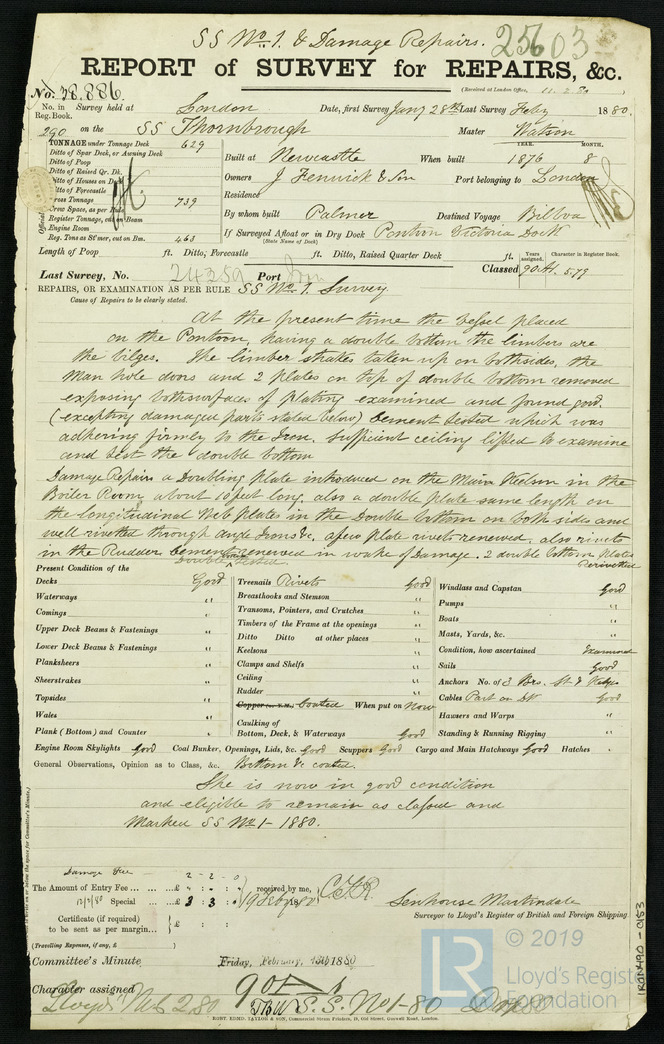 SS No. 1 & Damage Repairs.
25603
REPORT of SURVEY for REPAIRS, &c.
(Received at London Office,
No. 38,886
No. in Reg. Book. Survey held at London Date, first Survey Jany 28th Last Survey Feby 1880.
290 on the SS Thornbrough Master Watson
TONNAGE under Tonnage Deck 629
Ditto of Spar Deck, or Awning Deck
Ditto of Poop
Ditto of Raised Qr. Dk.
Ditto of Houses on Deck
Ditto of Forecastle
Gross Tonnage 739
Crew Space, as per Rule
Register Tonnage, cut on Beam
Engine Room
Reg. Tons as St'mer, cut on Bm. 463
YEAR. MONTH.
Built at Newcastle When built 1876 8
Owners J Fenwick & Son Port belonging to London
Residence
By whom built Palmer Destined Voyage Bilboa
If Surveyed Afloat or in Dry Dock Pontoon Victoria Dock
(State Name of Dock)
Length of Poop ft. Ditto, Forecastle ft. Ditto, Raised Quarter Deck ft.
Years assigned. Character in Register Book.
Last Survey, No. 24359 Port Classed 90A1. 5,79
REPAIRS, OR EXAMINATION AS PER RULE SS No. 1. Survey
Cause of Repairs to be clearly stated.
At the present time the Vessel placed
on the Pontoon, having a double bottom the limbers are
the bilges. The limber strakes taken up on bothsides, the
Man hole doors and 2 plates on top of double bottom removed
exposing bothsurfaces of plating examined and found good.
(excepting damaged parts stated below) Cement tested which was
adhering firmly to the Iron. Sufficient ceiling lifted to examine
and test the double bottom
Damage Repairs a Doubling plate introduced on the Main Keelson in the
Boiler Room, about 10 feet long, also a double plate same length on
the longitudinal Web plates in the Double bottom on both sides and
well rivetted through angle Irons &c. a few plate rivets renewed, also rivets
in the Rudder, Cement renewed in wake of Damage. 2 double bottom plates
Rerivetted
Double Tested
Present Condition of the
Decks Good
Waterways "
Comings "
Upper Deck Beams & Fastenings "
Lower Deck Beams & Fastenings "
Planksheers "
Sheerstrakes "
Topsides "
Wales "
Plank (Bottom) and Counter "
Treenails Rivets Good
Breasthooks and Stemson "
Transoms, Pointers, and Crutches "
Timbers of the Frame at the openings "
Ditto Ditto at other places "
Keelsons "
Clamps and Shelfs "
Ceiling "
Rudder "
Copper Coated When put on Now
Caulking of
Bottom, Deck, & Waterways Good
Windlass and Capstan Good
Pumps "
Boats "
Masts, Yards, &c. "
Condition, how ascertained Examined
Sails Good
Anchors No. of 3 Brs. St & Kedge
Cables Part on Dk Good
Hawsers and Warps "
Standing & Running Rigging "
Engine Room Skylights Good Coal Bunker, Openings, Lids, &c. Good Scuppers Good Cargo and Main Hatchways Good Hatches "
General Observations, Opinion as to Class, &c. Bottom &c coated.
She is now in good condition
and eligible to remain as classed and
Marked SS No 1 - 1880.
Damage Fee 2 - 2 - 0
The Amount of Entry Fee ... £ received by me,
12/2/80 Special ... £ 3 : 3 : 19 Feby 1880
Certificate (if required) £
to be sent as per margin...
(Travelling Expenses, if any, £ )
Senhouse Martindale
Surveyor to Lloyd's Register of British and Foreign Shipping.
Committee's Minute Friday, February, 13th 1880
Character assigned 90A1
S.S. No 1-80
ROBT. EDMD. TAYLOR & SON, Commercial Steam Printers, 19, Old Street, Goswell Road, London.
IRON490-0153
© 2019
LR
Lloyd's Register
Foundation